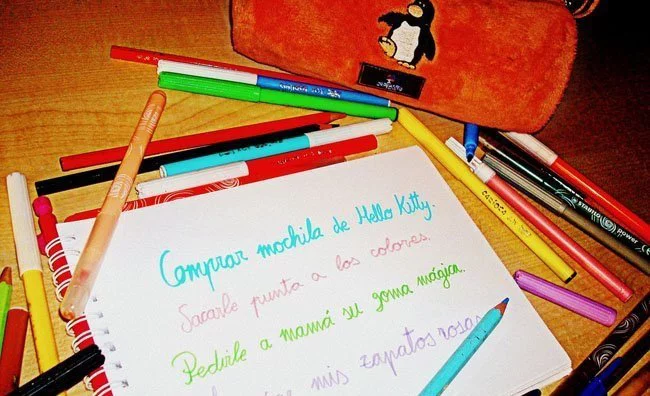 Comprar mochila de Hello Kitty.
Sacarle punta a los colores.
Pedirle a mamá su goma mágica.
mis zapatos rosas
carioca
STABILO power